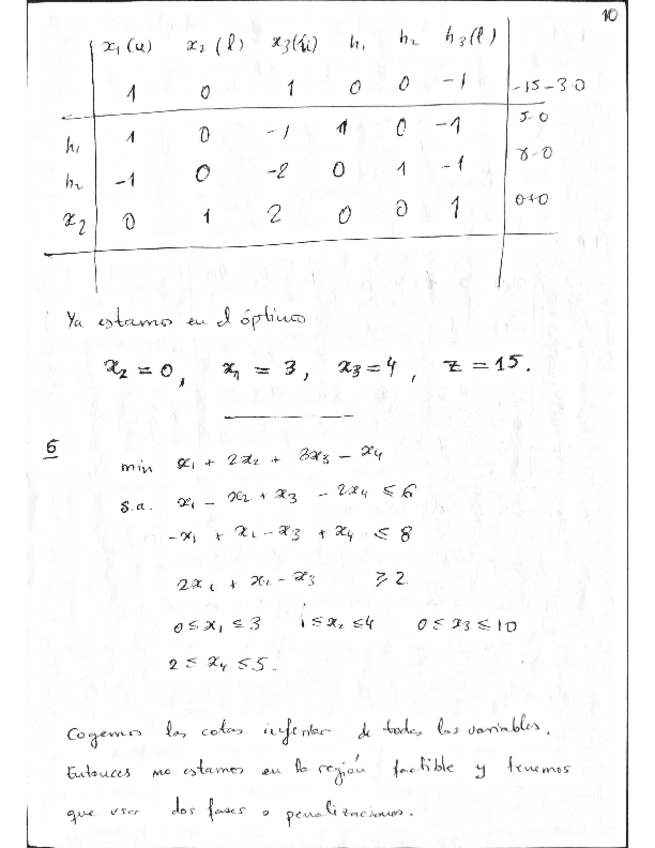 10
x₁(u) x₂(l) x₃(u) h₁ h₂ h₃(l)
1 0 1 0 0 -1 -15-30
h₁ 1 0 -1 1 0 -1 5-0
h₂ -1 0 -2 0 1 -1 8-0
x₂ 0 1 2 0 0 1 0+0
Ya estamos en el óptimo
x₂ = 0, x₁ = 3, x₃ = 4, z = 15.
6
min x₁ + 2x₂ + 3x₃ - x₄
s.a. x₁ - x₂ + x₃ - 2x₄ ≤ 6
-x₁ + x₂ - x₃ + x₄ ≤ 8
2x₁ + x₂ - x₃ ≥ 2
0 ≤ x₁ ≤ 3 1 ≤ x₂ ≤ 4 0 ≤ x₃ ≤ 10
2 ≤ x₄ ≤ 5.
Cogemos las cotas inferior de todas las variables.
Entonces no estamos en la región factible y tenemos
que usar dos fases o penalizaciones.